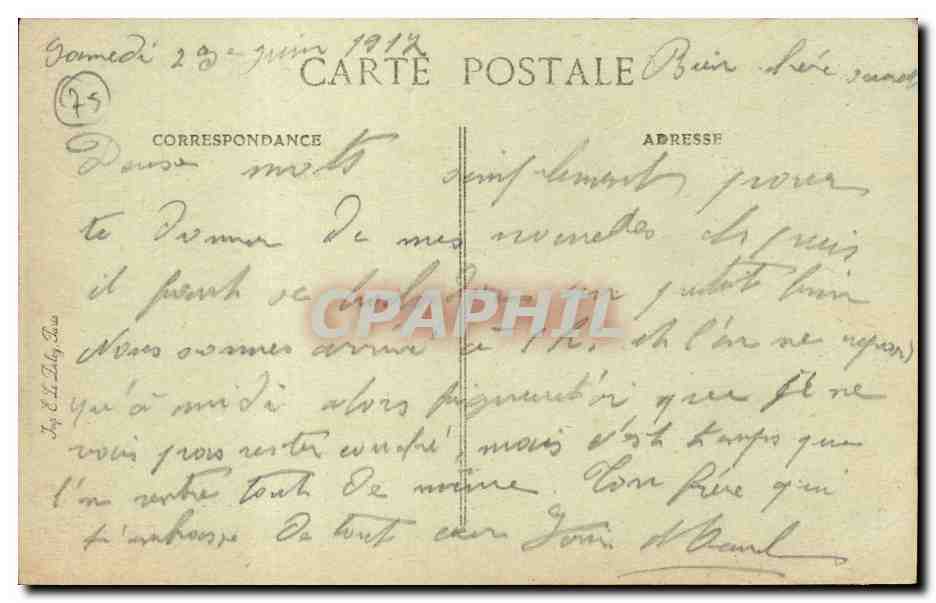 Samedi 23e juin 1917
CARTE POSTALE
Bien chère
75
CORRESPONDANCE
ADRESSE
Deux mots simplement pour
te donner de mes nouvelles et puis
il faut se un petit
Nous sommes arrivé à 7h. et l'on ne
qu'à midi alors que je ne
vais pas rester couché, mais c'est temps que
l'on rentre tout de même. Ton frère qui
t'embrasse de tout cœur
Imp. E. Le Deley, Paris
CPAPHIL